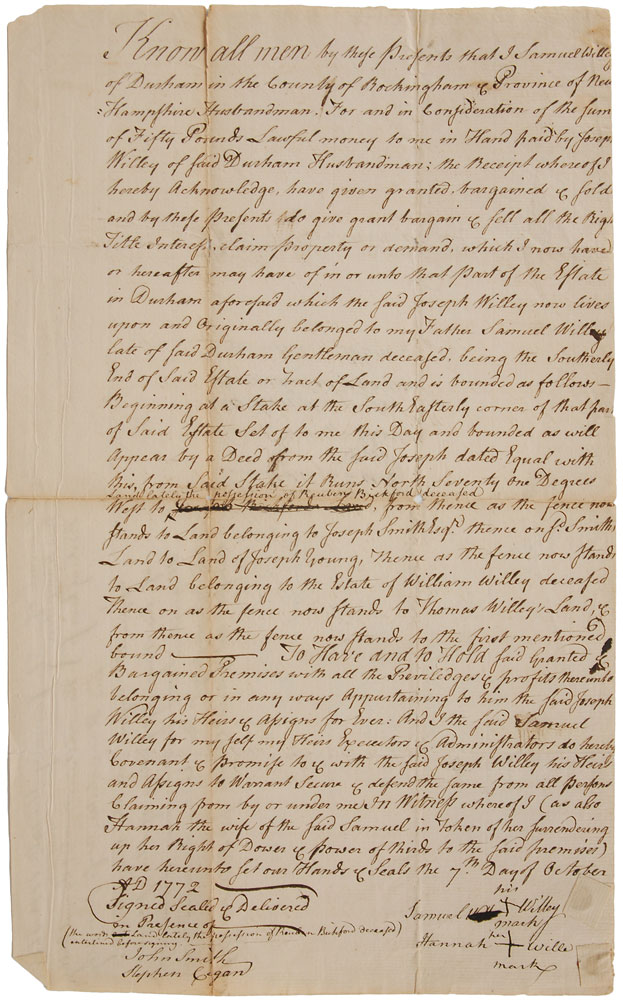 Know all men by these Presents that I Samuel Willey
of Durham in the County of Rockingham & Province of New
=Hampshire Husbandman. For and in Consideration of the sum
of Fifty Pounds Lawful money to me in Hand paid by Joseph
Willey of said Durham Husbandman; the Receipt whereof I
hereby Acknowledge, have given granted, bargained & sold
and by these Presents do give grant bargain & sell all the Righ
Title Interest, claim Property or demand, which I now have
or hereafter may have of in or unto that part of the Estate
in Durham aforesaid which the said Joseph Willey now lives
upon and Originally belonged to my Father Samuel Willey
late of said Durham Gentleman deceased, being the Southerly
End of Said Estate or Tract of Land and is bounded as follows—
Beginning at a Stake at the South Easterly corner of that par
of Said Estate Set of to me this Day and bounded as will
Appear by a Deed from the said Joseph dated Equal with
this, from Said Stake it Runs North Seventy one Degrees
Land lately the possession of Reuben Bickford deceased
West to , from thence as the fence now
stands to Land belonging to Joseph Smith Esqr. thence on sd. Smith
Land to Land of Joseph Young, Thence as the fence now Stands
to Land belonging to the Estate of William Willey deceased
Thence on as the fence now stands to Thomas Willey's Land, &
from thence as the fence now stands to the first mentioned
bound To Have and to Hold said Granted &
Bargained Premises with all the Priviledges & profits thereunto
belonging or in any ways Appurtaining to him the said Joseph
Willey his Heirs & Assigns for Ever: And I the said Samuel
Willey for my self my Heirs Executors & Administrators do hereby
Covenant & Promise to & with the said Joseph Willey his Heirs
and Assigns to Warrant Secure & defend the same from all Persons
Claiming from by or under me In Witness whereof I (as also
Hannah the wife of the said Samuel in Token of her surrendering
up her Right of Dower & Power of thirds to the said premises)
have hereunto set our Hands & Seals the 7th Day of October
AD 1772
Signed Sealed & Delivered
in Presence of
(the words Land lately the possession of Reuben Bickford deceased)
enterlined before signing
John Smith
Stephen Cogan
his
Samuel Willey
mark
her
Hannah + Wille
mark